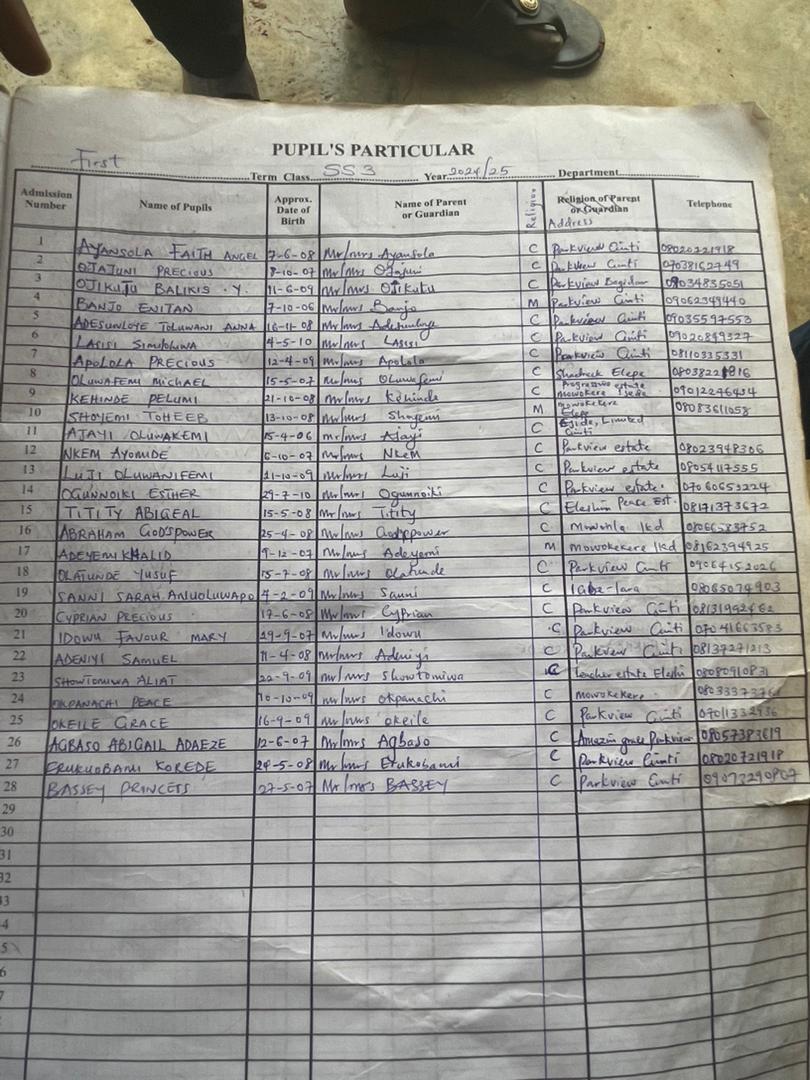 PUPIL'S PARTICULAR
First Term Class SS3 Year 2024/25 Department
Admission Number Name of Pupils Approx. Date of Birth Name of Parent or Guardian Religion Religion of Parent or Guardian Address Telephone
1 AYANSOLA FAITH ANGEL 7-6-08 Mr/mrs Ayansola C Parkview Ginti 08020721918
2 OJAJUNI PRECIOUS 8-10-07 Mr/Mrs Ojajuni C Parkview Ginti 07038162749
3 OJIKUTU BALIKIS .Y. 11-6-09 Mr/Mrs Ojikutu C Parkview 09034835051
4 BANJO ENITAN 7-10-06 Mr/Mrs Banjo M Parkview Ginti 09062349440
5 ADESUNLOYE TOLUWANI ANNA 16-11-08 Mr/Mrs C Parkview Ginti 09035597553
6 LASISI Simuoluwa 4-5-10 Mr/Mrs Lasisi C Parkview Ginti 09020849327
7 APOLOLA PRECIOUS 12-4-09 Mr/Mrs Apolola C Parkview Ginti 08110335331
8 OLUWAFEMI MICHAEL 15-5-07 Mr/Mrs Oluwafemi C Shadrack Elepe
9 KEHINDE PELUMI 21-10-08 Mr/Mrs Kehinde C Progressive estate mowokere 09012246434
10 SHOYEMI TOHEEB 13-10-08 Mr/Mrs Shoyemi M mowokekere Elepe 08083611058
11 AJAYI OLUWAKEMI 15-4-06 mr/mrs Ajayi C Limited Ginti
12 NKEM AYOMIDE 6-10-07 Mr/mrs Nkem C Parkview estate 08023948306
13 LUJI OLUWANIFEMI 21-10-09 Mr/mrs Luji C Parkview estate 08054117555
14 OGUNNOIKI ESTHER 29-7-10 Mr/mrs Ogunnoiki C Parkview estate. 07060653224
15 TITITY ABIGEAL 15-5-08 Mr/mrs Titity C Peace Est. 08171373672
16 ABRAHAM GOD'SPOWER 25-4-08 Mr/mrs Godspower C Ikd 08066583752
17 ADEYEMI KHALID 9-12-07 Mr/mrs Adeyemi M mowokekere Ikd 08162394925
18 OLATUNDE YUSUF 15-7-08 Mr/mrs Olatunde C Parkview Ginti 09064152026
19 SANNI SARAH. ANUOLUWAPO 4-2-09 Mr/mrs Sanni C 08065074903
20 CYPRIAN PRECIOUS 17-6-08 Mr/mrs Cyprian C Parkview Ginti 08131992462
21 IDOWU FAVOUR MARY 29-9-07 Mr/mrs Idowu C Parkview Ginti 07041663583
22 ADENIYI SAMUEL 11-4-08 mr/mrs Adeniyi C Parkview Ginti 08137271213
23 SHOWTOMIWA ALIAT 22-9-09 mr/mrs Showtomiwa C teacher estate 08080910831
24 OKPANACHI PEACE 10-10-09 mr/mrs okpanachi C mowokekere
25 OKEILE GRACE 16-9-09 mr/mrs okeile C Parkview Ginti 07011332936
26 AGBASO ABIGAIL ADAEZE 12-6-07 Mr/mrs Agbaso C Amazing grace Parkview 08057383619
27 ERUKUOBAMI KOREDE 28-5-08 Mr/mrs Erukobami C Parkview Ginti 08020721918
28 BASSEY PRINCESS 27-5-07 Mr/mrs BASSEY C Parkview Ginti 09073290807
29
30
31
32
33